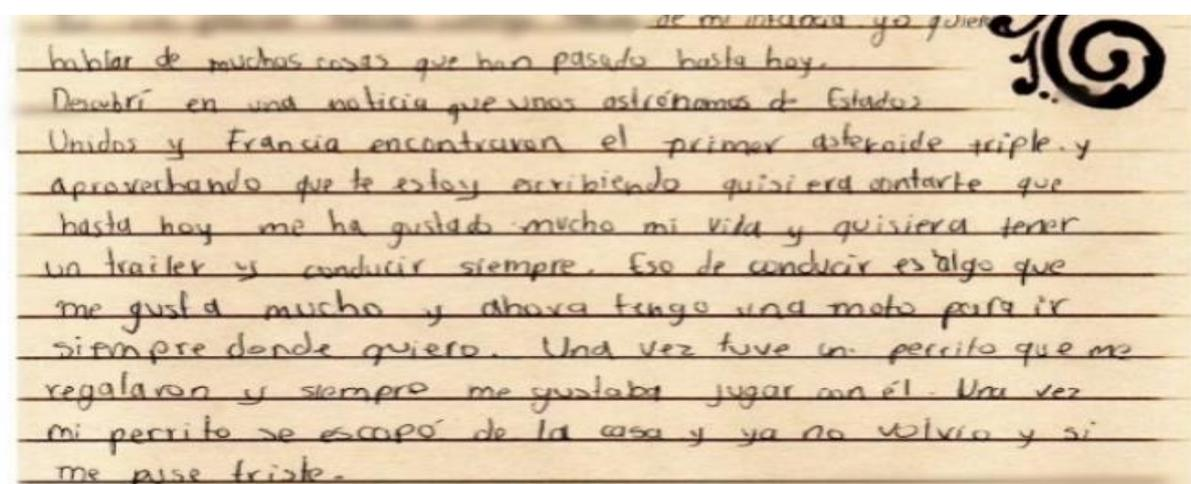 de mi infancia yo quiero
hablar de muchas cosas que han pasado hasta hoy.
Descubrí en una noticia que unos astrónomos de Estados
Unidos y Francia encontraron el primer asteroide triple. y
aprovechando que te estoy escribiendo quisiera contarte que
hasta hoy me ha gustado mucho mi vida y quisiera tener
un trailer y conducir siempre. Eso de conducir es algo que
me gusta mucho y ahora tengo una moto para ir
siempre donde quiero. Una vez tuve un perrito que me
regalaron y siempre me gustaba jugar con él. Una vez
mi perrito se escapó de la casa y ya no volvio y si
me puse triste.